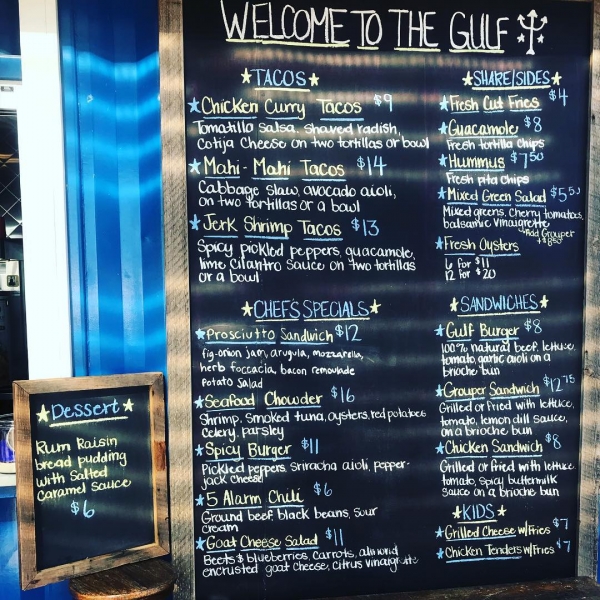 WELCOME TO THE GULF
TACOS
Chicken Curry Tacos $9
Tomatillo salsa, shaved radish,
Cotija Cheese on two tortillas or bowl
Mahi-Mahi Tacos $14
Cabbage slaw, avocado aioli,
on two tortillas or a bowl
Jerk Shrimp Tacos $13
Spicy pickled peppers, guacamole,
lime cilantro Sauce on two tortillas
or a bowl
CHEF'S SPECIALS
Prosciutto Sandwich $12
fig-onion jam, arugula, mozzarella,
herb foccacia, bacon remoulade
Potato Salad
Seafood Chowder $16
Shrimp, smoked tuna, oysters, red potatoes
celery, parsley
Spicy Burger $11
Pickled peppers, sriracha aioli, pepper-
jack cheese
5 Alarm Chili $6
Ground beef, black beans, sour
cream
Goat Cheese Salad $11
Beets & blueberries, carrots, almond
encrusted goat cheese, citrus vinaigrette
SHARE/SIDES
Fresh Cut Fries $4
Guacamole $8
Fresh tortilla Chips
Hummus $7.50
Fresh pita Chips
Mixed Green Salad $5.50
Mixed greens, Cherry tomatoes,
balsamic vinaigrette
Add Grouper
Fresh Oysters
6 for $11
12 for $20
SANDWICHES
Gulf Burger $8
100% natural beef, lettuce,
tomato, garlic aioli on a
brioche bun
Grouper Sandwich $12.75
Grilled or Fried with lettuce,
tomato, lemon dill sauce,
on a brioche bun
Chicken Sandwich $8
Grilled or Fried with lettuce
tomato, spicy buttermilk
sauce on a brioche bun
KIDS
Grilled Cheese w/Fries $7
Chicken Tenders w/Fries $7
Dessert
Rum Raisin
bread pudding
with Salted
Caramel Sauce
$6